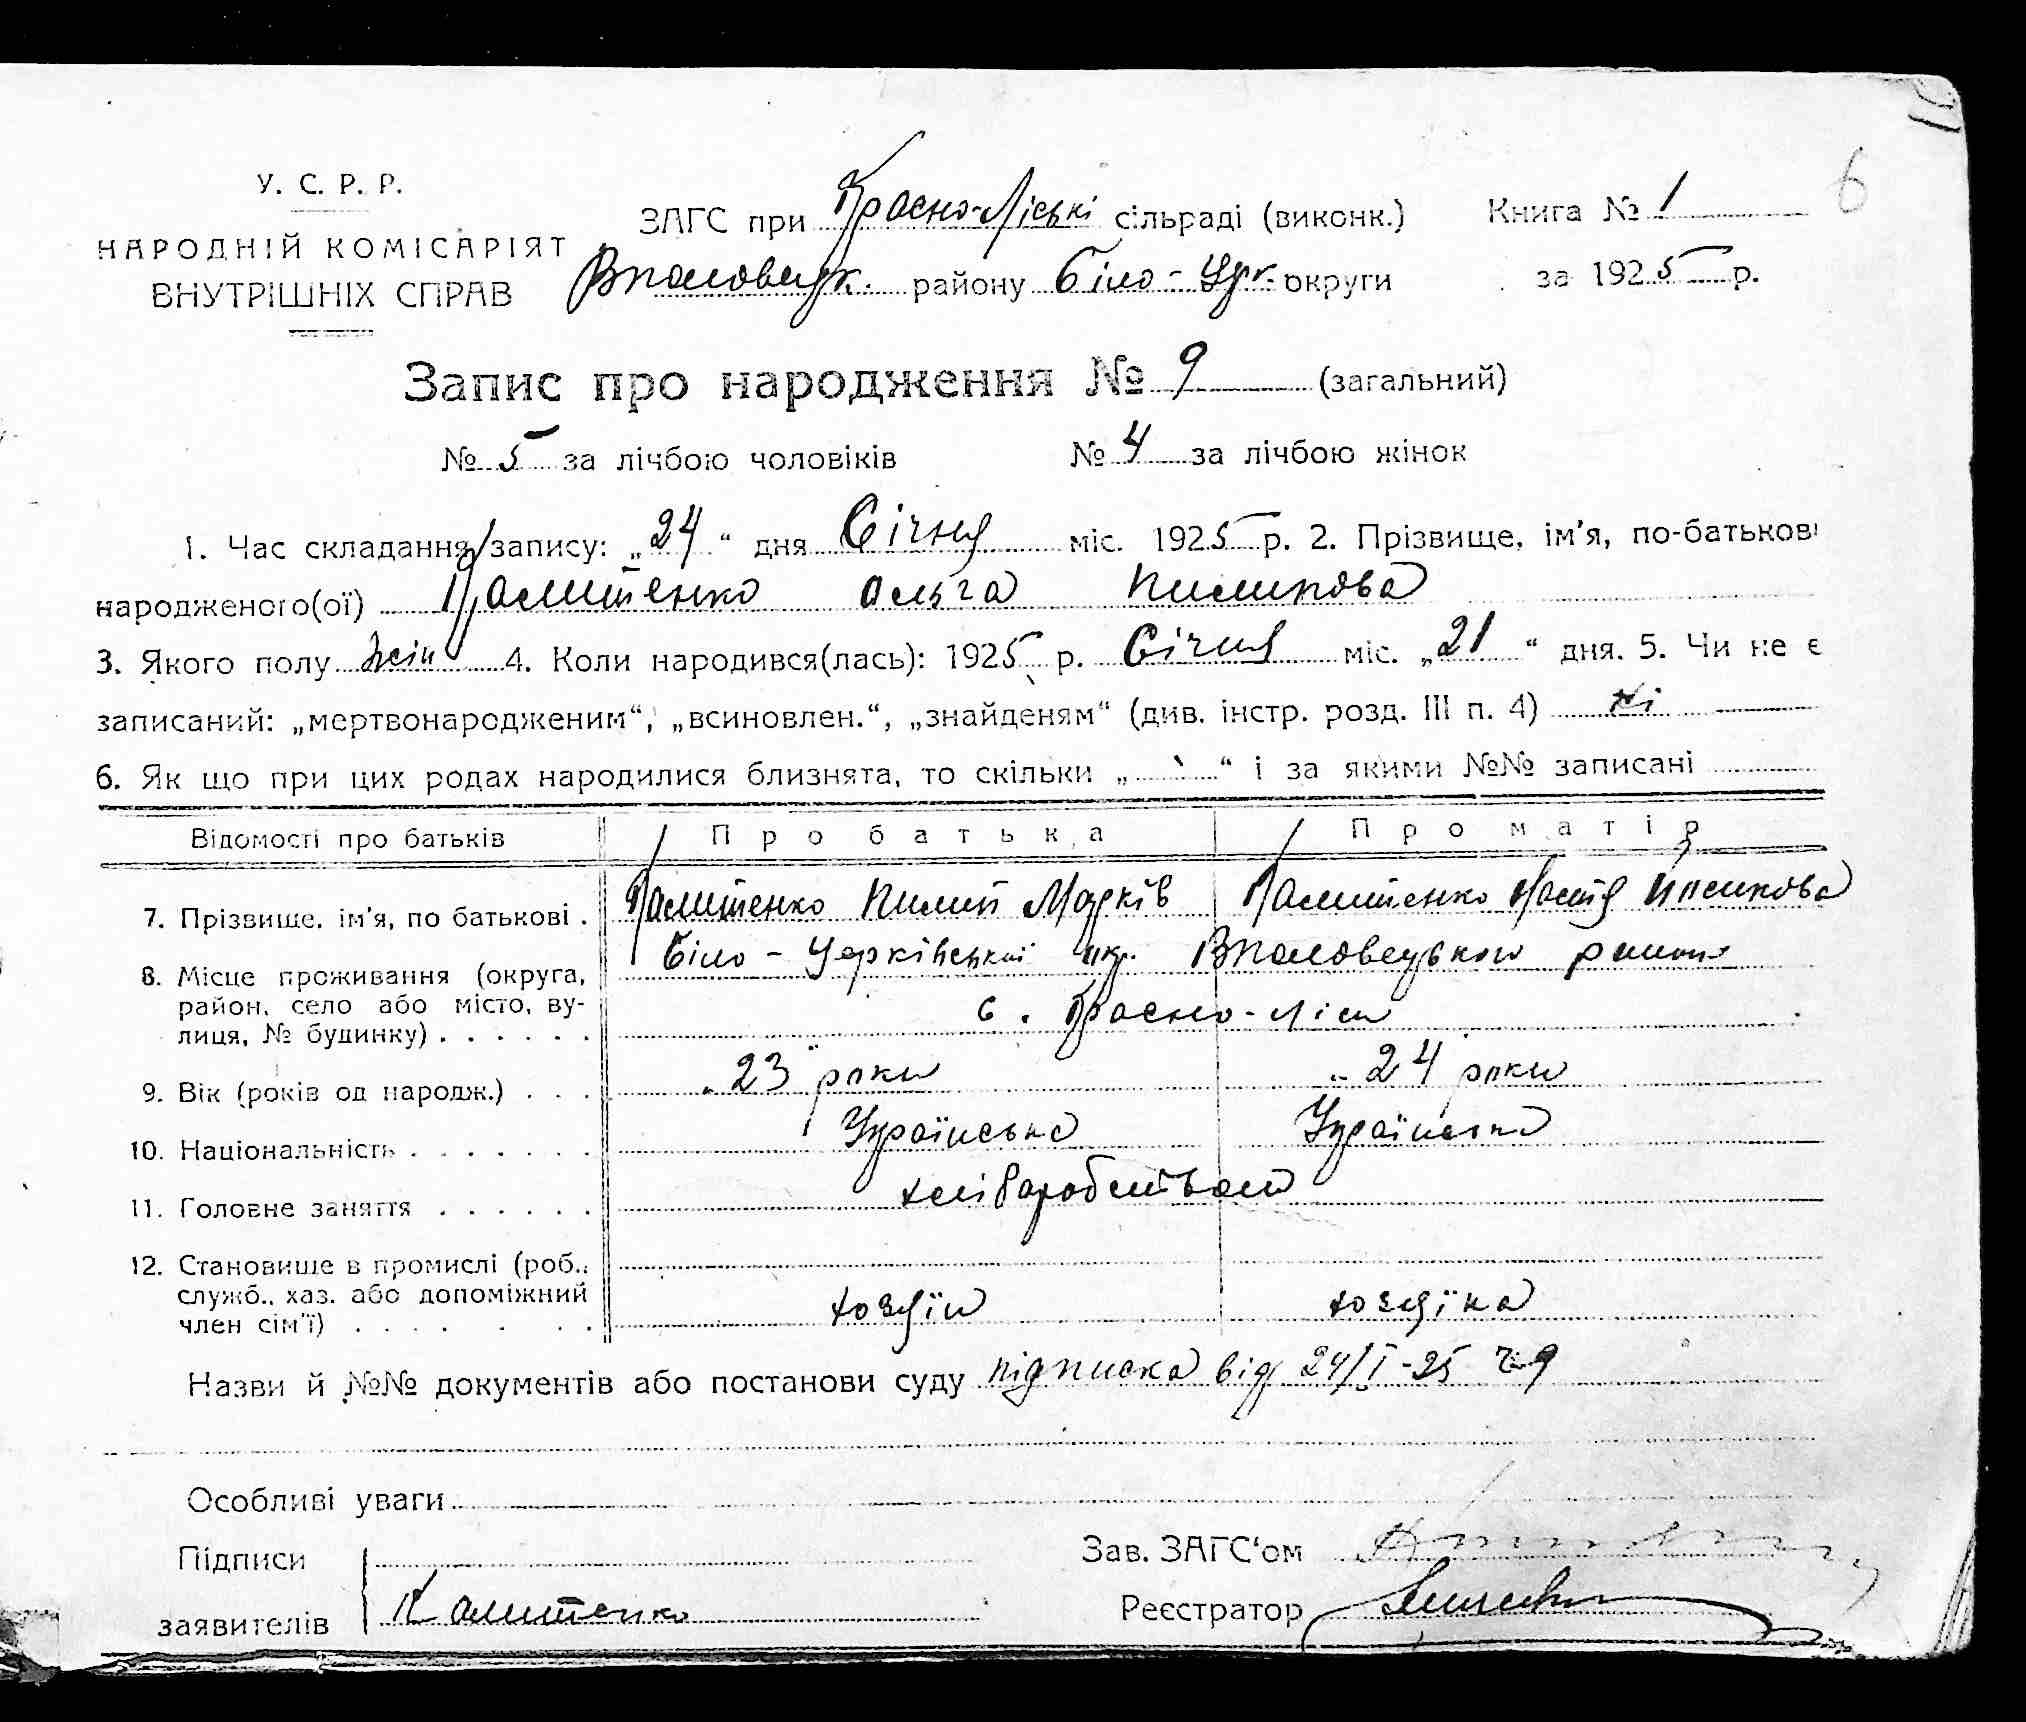 6
У. С. Р. Р.
НАРОДНІЙ КОМІСАРІЯТ
ВНУТРІШНІХ СПРАВ
ЗАГС при Красно-Ліські сільраді (виконк.)
Книга № 1
Вполовецк. району Біло-Церк. округи
за 1925 р.
Запис про народження № 9 (загальний)
№ 5 за лічбою чоловіків № 4 за лічбою жінок
1. Час складання запису: „24“ дня Січня міс. 1925 р. 2. Прізвище, ім'я, по-батькові
народженого(ої) Калитенко Ольга Пилипова
3. Якого полу жін 4. Коли народився(лась): 1925 р. Січня міс. „21“ дня. 5. Чи не є
записаний: „мертвонародженим“, „всиновлен.“, „знайденям“ (див. інстр. розд. III п. 4) ні
6. Як що при цих родах народилися близнята, то скільки „ “ і за якими №№ записані
Відомості про батьків Про батька Про матір
7. Прізвище, ім'я, по батькові . Калитенко Пилип Марків Калитенко Настя
8. Місце проживання (округа, Біло-Церківської окр. Вполовецького району
район, село або місто, ву- с. Красно-Ліси
лиця, № будинку) . . . . . .
9. Вік (років од народж.) . . . 23 роки 24 роки
10. Національність . . . . . . . Українська Українська
11. Головне заняття . . . . . . хліборобством
12. Становище в промислі (роб.,
служб., хаз. або допоміжний хозяїн хозяїка
член сім'ї) . . . . . . .
Назви й №№ документів або постанови суду підписка від 24/I-25 ч 9
Особливі уваги
Підписи
заявителів Калитенко
Зав. ЗАГС'ом
Реєстратор